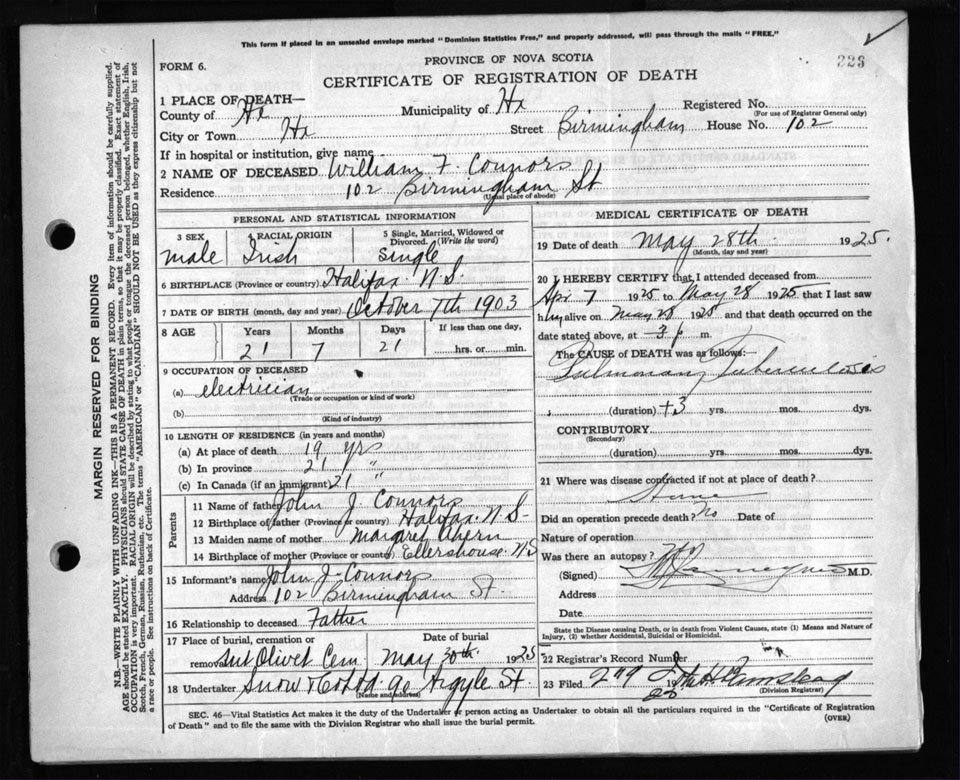 This form if placed in an unsealed envelope marked "Dominion Statistics Free," and properly addressed, will pass through the mails "FREE."
FORM 6.
PROVINCE OF NOVA SCOTIA
223
CERTIFICATE OF REGISTRATION OF DEATH
1 PLACE OF DEATH—
County of Hx Municipality of Hx Registered No.
(For use of Registrar General only)
City or Town Hx Street Birmingham House No. 102
If in hospital or institution, give name
2 NAME OF DECEASED William F. Connors
Residence 102 Birmingham St
(Usual place of abode)
PERSONAL AND STATISTICAL INFORMATION
3 SEX 4 RACIAL ORIGIN 5 Single, Married, Widowed or Divorced. (Write the word)
male Irish single
6 BIRTHPLACE (Province or country) Halifax N.S.
7 DATE OF BIRTH (month, day and year) October 7th 1903
8 AGE Years Months Days If less than one day,
21 7 21 hrs. or min.
9 OCCUPATION OF DECEASED
(a) electrician
(Trade or occupation or kind of work)
(b)
(Kind of industry)
10 LENGTH OF RESIDENCE (in years and months)
(a) At place of death 19 yrs
(b) In province 21 "
(c) In Canada (if an immigrant) 21 "
Parents
11 Name of father John J Connors
12 Birthplace of father (Province or country) Halifax N.S.
13 Maiden name of mother Margaret Ahern
14 Birthplace of mother (Province or country) Ellershouse N.S
15 Informant's name John J. Connors
Address 102 Birmingham St.
16 Relationship to deceased Father
17 Place of burial, cremation or removal Mt Olivet Cem Date of burial May 30th 1925
18 Undertaker Snow & Co Ltd. 90 Argyle St
(Name and address)
MEDICAL CERTIFICATE OF DEATH
19 Date of death May 28th 1925.
(Month, day and year)
20 I HEREBY CERTIFY that I attended deceased from
Apr 7 1925 to May 28 1925 that I last saw
h alive on May 28 1925 and that death occurred on the
date stated above, at 3 p m.
The CAUSE of DEATH was as follows:—
Pulmonary Tuberculosis
(duration) +3 yrs. mos. dys.
CONTRIBUTORY
(Secondary)
(duration) yrs. mos. dys.
21 Where was disease contracted if not at place of death?
Home
Did an operation precede death? No Date of
Nature of operation
Was there an autopsy? No
(Signed) M.D.
Address
Date
State the Disease causing Death, or in death from Violent Causes, state (1) Means and Nature of Injury, (2) whether Accidental, Suicidal or Homicidal.
22 Registrar's Record Number
23 Filed 279 19
(Division Registrar)
SEC. 46—Vital Statistics Act makes it the duty of the Undertaker or person acting as Undertaker to obtain all the particulars required in the "Certificate of Registration
of Death" and to file the same with the Division Registrar who shall issue the burial permit.
(OVER)
MARGIN RESERVED FOR BINDING
N.B.—WRITE PLAINLY WITH UNFADING INK—THIS IS A PERMANENT RECORD. Every item of information should be carefully supplied.
AGE should be stated EXACTLY. PHYSICIANS should STATE CAUSE OF DEATH in plain terms, so that it may be properly classified. Exact statement of
OCCUPATION is very important. RACIAL ORIGIN will be described by stating to what people or tongue the deceased person belonged, whether English, Irish,
Scotch, French, German, Russian, Ruthenian, etc. The terms "AMERICAN" or "CANADIAN" SHOULD NOT BE USED as they express citizenship but not
a race or people. See instructions on back of Certificate.